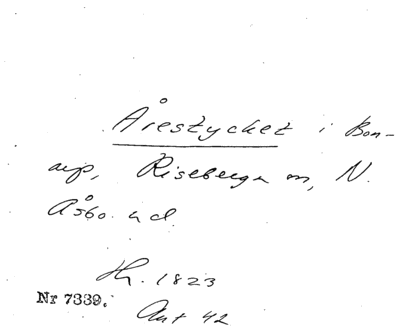 Årestycket i Bon-
arp, Riseberga sn, N.
Åsbo hd.
Hr. 1823
Nr 7339.
Ant 42